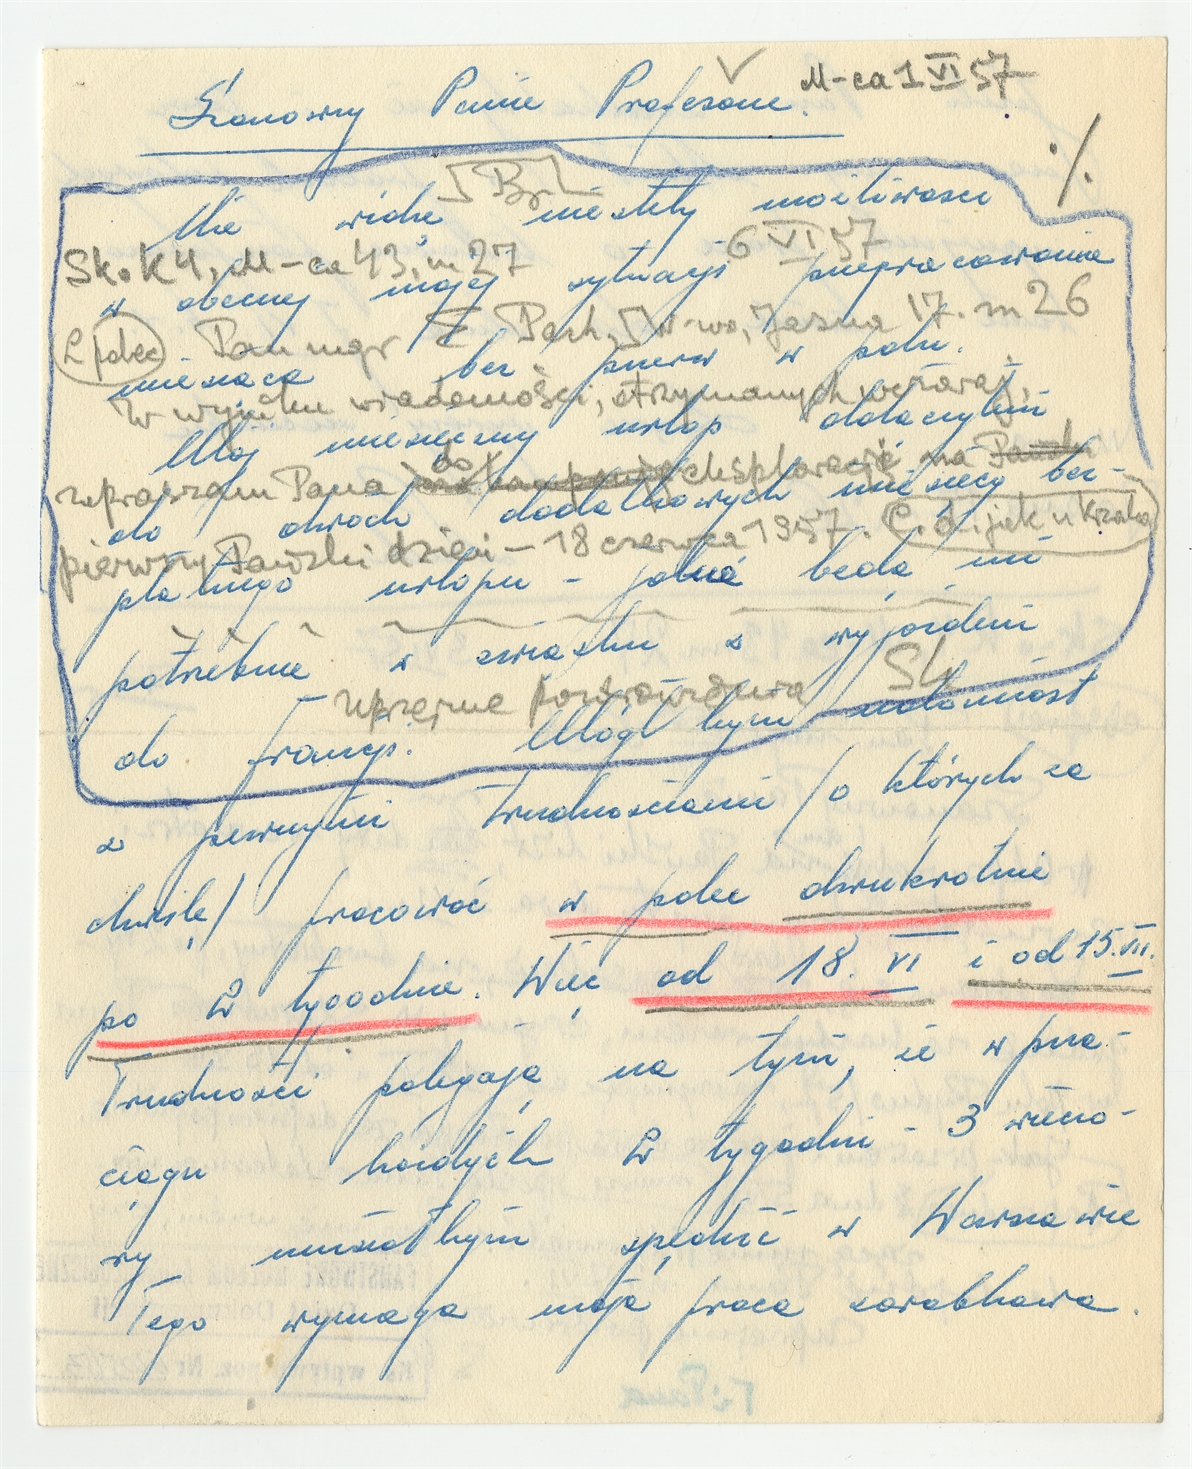 M-ca 1 VI 57
Szanowny Panie Profesorze.
·/.
Br
Nie widzę niestety możliwości
6 VI 57
Sk. K4, M-ca 43, m 27
w obecnej mojej sytuacji przepracowania
L. polec. Pan mgr E. Poch, W-wa, Jasna 17. m 26
miesiąca bez przerw w polu.
W wyniku wiadomości, otrzymanych wczoraj,
Mój miesięczny urlop dołączyłem
zapraszam Pana do eksploracji na
do dwóch dodatkowych miesięcy bez-
pierwszy Pański dzień – 18 czerwca 1957.
płatnego urlopu – jakie będą mi
potrzebne w związku z wyjazdem
uprzejme pozdrowienia Sk
do Francji. Mógłbym natomiast
z pewnymi trudnościami /o których za
chwilę/ pracować w polu dwukrotnie
po 2 tygodnie. Więc od 18. VI i od 15. VII.
Trudności polegają na tym, że w prze-
ciągu każdych 2 tygodni – 3 wieczo-
ry musiałbym spędzić w Warszawie
Tego wymaga moja praca zarobkowa.